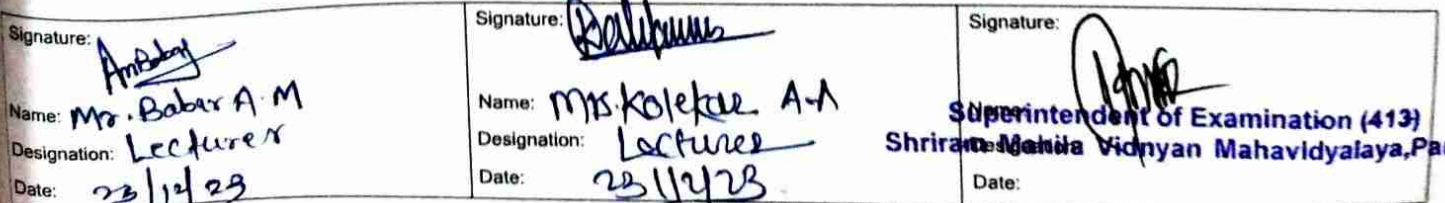 Signature:
AmBabar
Name: Mr. Babar A. M
Designation: Lecturer
Date: 23/12/23
Signature:
Name: Mrs. Kolekar A-A
Designation: Lecturer
Date: 23/12/23
Signature:
Name:
Superintendent of Examination (413)
Designation:
Shriram Mahila Vidnyan Mahavidyalaya,Pa
Date: